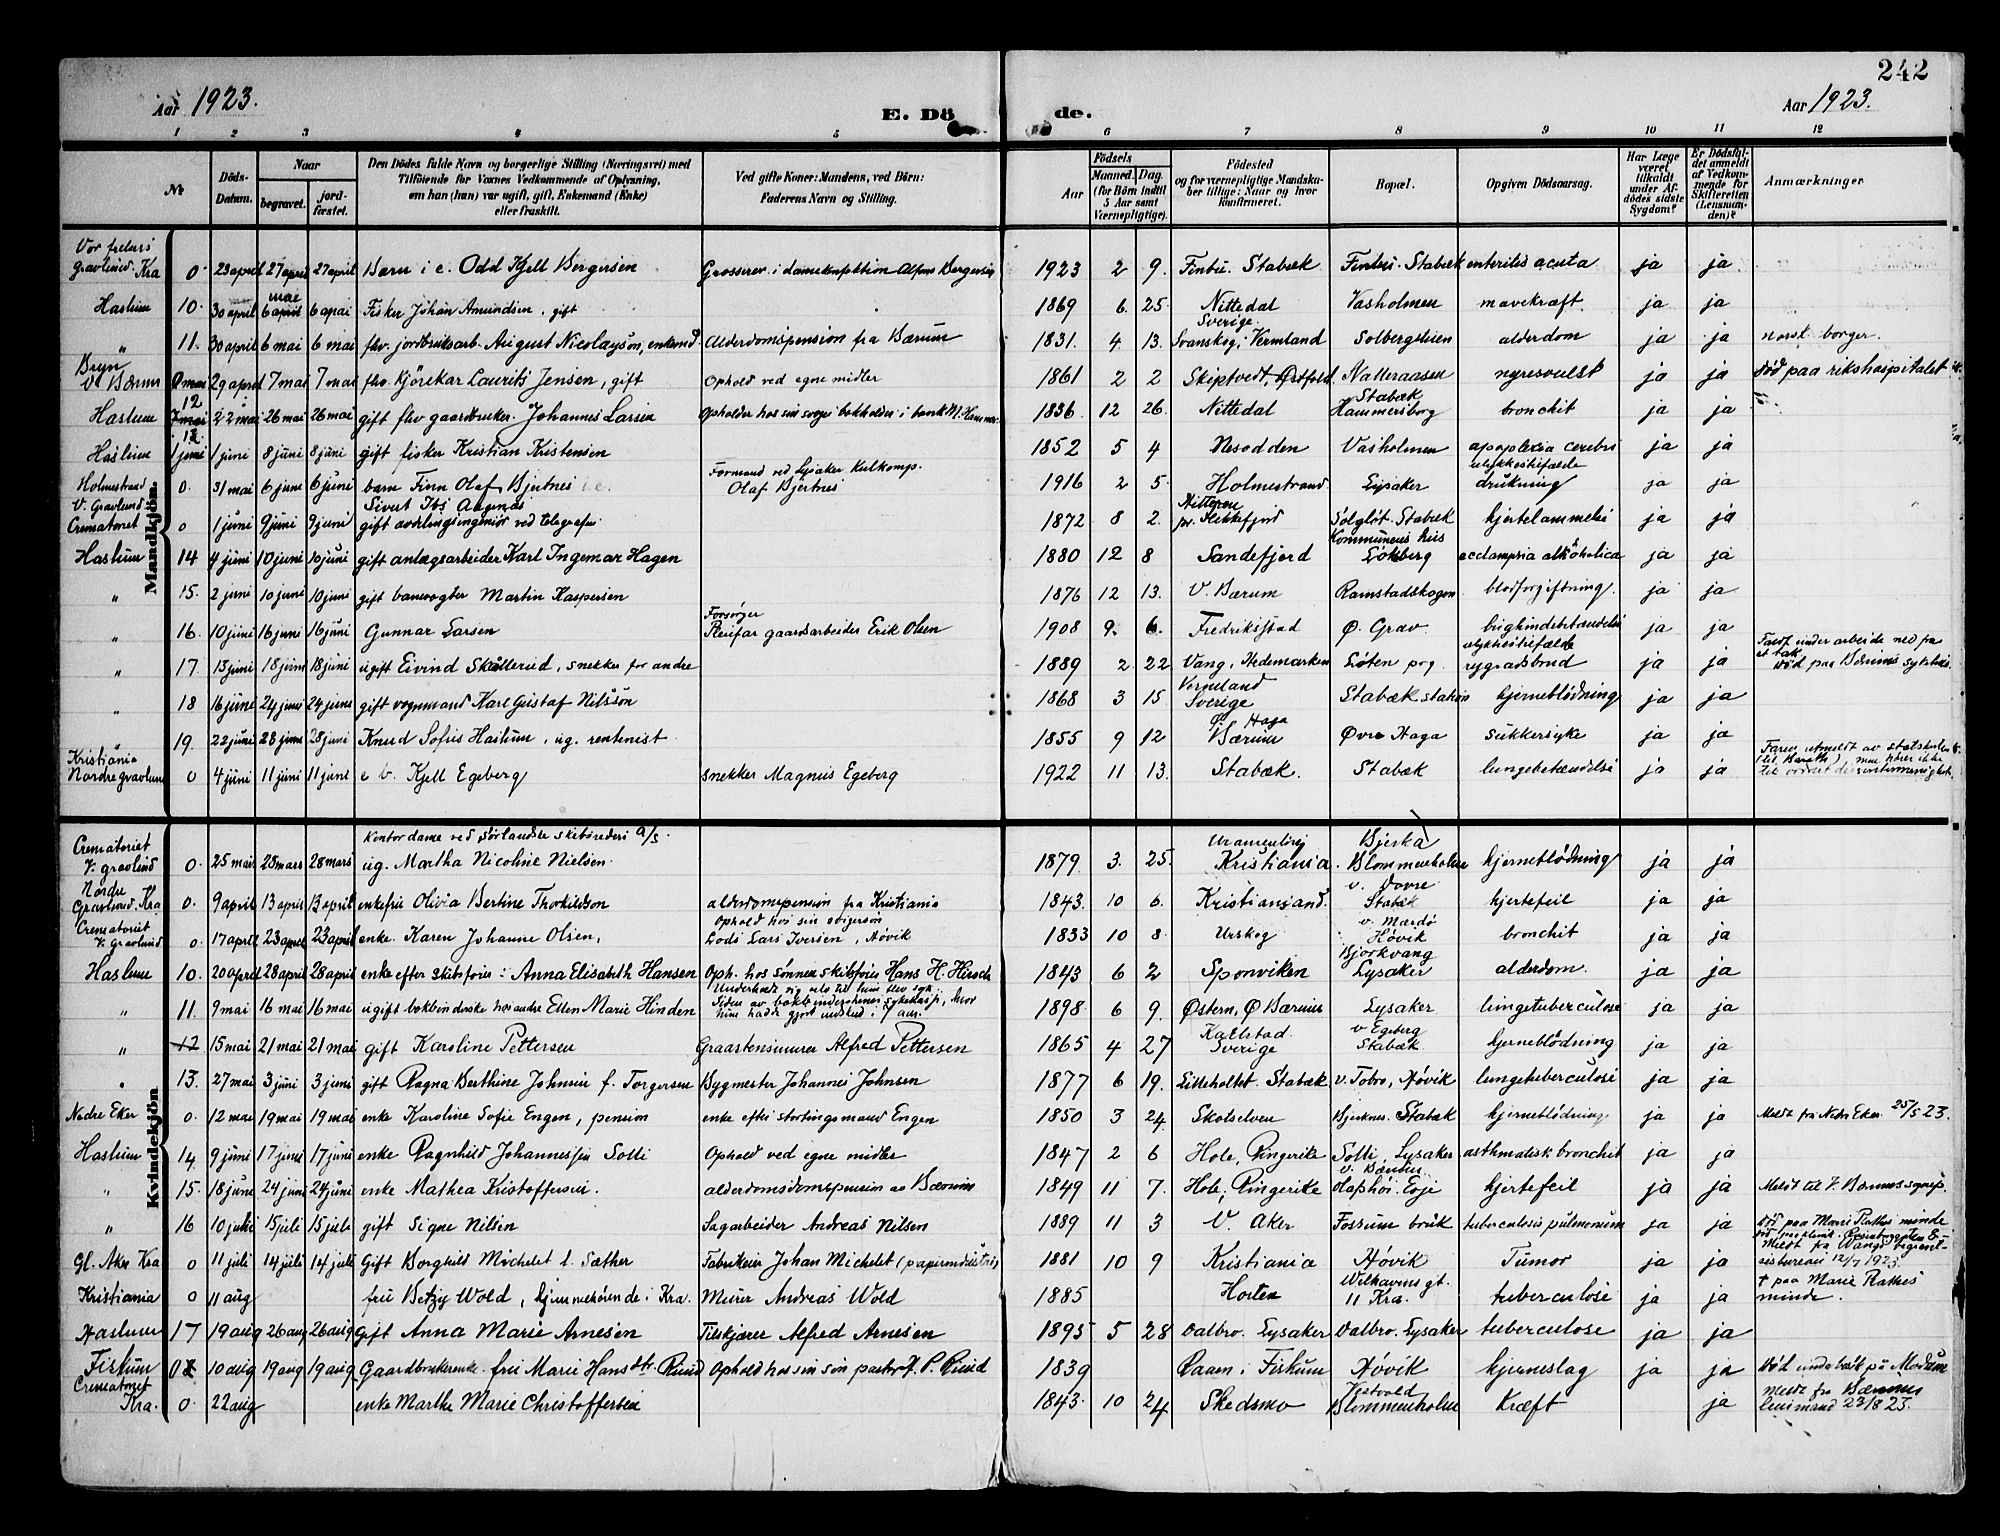 242
Aar 1923.
E. Dö de.
Aar 1923.
1 2 3 4 5 6 7 8 9 10 11 12
No
Döds-Datum.
Naar
begravet.
jord-fæstet.
Den Dödes fulde Navn og borgerlige Stilling (Næringsvei) med
Tilföiende for Voxnes Vedkommende af Oplysning,
om han (hun) var ugift, gift, Enkemand (Enke)
eller fraskilt.
Ved gifte Koner: Mandens, ved Börn:
Faderens Navn og Stilling.
Födsels
Aar
Maaned. Dag.
(for Börn indtil
5 Aar samt
Værnepligtige).
Födested
og for værnepligtige Mandska-
ber tillige: Naar og hvor
konfirmeret.
Bopæl.
Opgiven Dödsaarsag.
Har Læge
været
tilkaldt
under Af-
dödes sidste
Sygdom?
Er Dödsfal-
det anmeldt
af Vedkom-
mende for
Skifteretten
(Lensman-
den)?
Anmærkninger
Mandkjön.
Vor frelsers
gravlund. Kra 0. 23 april 27 april 27 april Barn i e. Odd Kjell Bergersen Grosserer i damekonfektion Alfons Bergersen 1923 2 9. Stabæk Stabæk enteritis acuta ja ja
Haslum 10. 30 april mai 6 april 6 mai Fisker Johan Amundsen, gift 1869 6. 25 Nittedal Vasholmen mavekræft. ja ja
" 11. 30 april 6 mai 6 mai flv. jordbruksarb. August Nicolayson, enkemd Alderdomspension fra Bærum 1831. 4 13. Sverige. Svanskog, Vermland Solbergsleien alderdom ja ja norsk borger.
Bryn
V. Bærum 29 april 7 mai 7 mai flv. kjörekar Laurits Jensen, gift Ophold ved egne midler 1861 2 2 Skiptvedt, Østfold Natteraasen Stabæk nyresvulst ja ja död paa rikshospitalet
Haslum 12 22 mai 26 mai 26 mai gift flv gaardbruker. Johannes Larsen Opholder hos sin svoger bokholder i bank 1836 12 26. Nittedal Hammersborg bronchit ja ja
Haslum 13 1 juni 8 juni 8 juni gift fisker Kristian Kristensen 1852 5 4 Nesodden Vasholmen apoplexia cerebri ja ja
Holmestrand 0. 31 mai 6 juni 6 juni barn Finn Olaf Bjertnes Formand ved Lysaker Kulkomp. Olaf Bjertnes 1916 2 5. Holmestrand Lysaker ulykkestilfælde drukning ja ja
V. Gravlund
Crematoriet 0 1 juni 9 juni 9 juni gift avdlingsingeniör ved telegrafv. 1872 8 2. pr. Flekkefjord Solglöt. Stabæk hjertelammelse ja ja
Haslum 14 4 juni 10 juni 10 juni gift anlægsarbeider Karl Ingemar Hagen 1880 12 8 Sandefjord Kommunens hus Lökberg eclampria alkoholica ja ja
" 15. 2 juni 10 juni 10 juni gift banevogter Martin Kaspersen 1876 12 13. V. Bærum Ramstadskogen blodforgiftning. ja ja
" 16. 10 juni 16 juni 16 juni Gunnar Larsen Forsörger Pleiefar gaardsarbeider Erik Olsen 1908 9. 6. Fredrikstad Ø. Grav bughindebetændelse ja ja
" 17. 13 juni 18 juni 18 juni ugift Eivind Sköllerud, snekker for andre 1889 2 22 Vang, Hedemarken Löten prg. ulykkestilfælde rygradsbrud ja ja Faldt under arbeide ned fra et tak, död paa Bærums sykehus.
" 18 16 juni 24 juni 24 juni gift vognmand Karl Gustaf Nilsson 1868 3 15 Vermeland Sverige Stabæk station hjerneblödning ja ja
19. 22 juni 28 juni 28 juni Knud Sofus Haslum, ug. rentenist. 1855 9 12 Ø Haga Bærum Øvre Haga sukkersyke ja ja
Kristiania
Nordre gravlund 0 4 juni 11 juni 11 juni e b. Kjell Egeberg snekker Magnus Egeberg 1922 11 13. Stabæk. Stabæk lungebetændelse ja ja Faren utmeldt av statskirken
Kvindekjön
Crematoriet
V. gravlund 0. 25 mars 28 mars 28 mars Kontordame ved Sørlandske skibsrederi a/s. ug. Martha Nicoline Nielsen. 1879. 3. 25. Uranienborg Kristiania Bjerka Blommenholm hjerneblödning ja ja
Nordre
Gravlund. Kra 0. 9 april 13 april 13 april enkefrü Olivia Bertine Thorkildson alderdomspension fra Kristiania 1843. 10 6. Kristiansand. v. Dovre Stabæk hjertefeil ja ja
Crematoriet
V. gravlund 0 17 april 23 april 23 april enke. Karen Johanne Olsen, Ophold hos sin svigersön Lods Lars Iversen, Hövik 1833 10 8 Urskog v. Mærdö Hövik bronchit ja ja
Haslum 10. 20 april 28 april 28 april enke efter skibsförer: Anna Elisabeth Hansen Oph. hos sönnen skibsförer Hans H. 1843 6 2 Sponviken Bjorkvang Lysaker alderdom. ja ja
" 11. 9 mai 16 mai 16 mai ugift bokbinderske hos andre Ellen Marie Hinden Underholdt sig selv til hun blev syk. Siden av bokbindersvenes sykekasse, hvor hun hadde gjort indskud i 7 aar. 1898 6 9. Østern, Ø Bærum Lysaker lungetuberculose ja ja
" 12 15 mai 21 mai 21 mai gift Karoline Pettersen Graastensmurer Alfred Pettersen 1865 4 27 Karlstad Sverige v Egeberg Stabæk. hjerneblödning ja ja
" 13. 27 mai 3 juni 3 juni gift Ragna Berthine Johnsen f. Torgersen Bygmester Johannes Johnsen 1877 6 19. Lilleholtet. Stabæk v. Tobro, Hövik lungetuberculose ja ja
Nedre Eker 0. 12 mai 19 mai 19 mai enke Karoline Sofie Engen, pension enke efter stortingsmand Engen 1850 3 24 Skotselven Bjerknes. Stabæk hjerneblödning ja ja Meldt fra Nedre Eker 25/5 23.
Haslum 14. 9 juni 17 juni 17 juni enke Ragnhild Johannessen Solli Ophold ved egne midler 1847 2 6 Hole, Ringerike Solli, Lysaker asthmatisk bronchit ja ja
" 15. 18 juni 24 juni 24 juni enke Mathea Kristoffersen. alderdomsdomspension av Bærum 1849 11 7. Hole, Ringerike v. Bærum Olaphöi. Evje hjertefeil ja ja Meldt til V. Bærums sogneprest
" 16 10 juli 15 juli 15 juli gift Signe Nilsen Sagarbeider Andreas Nilsen 1889 11 3 V. Aker Fossum bruk tuberculosis pulmonum ja ja död paa Marie Plathes minde
Gl. Aker Kra 0 11 juli 14 juli 14 juli Gift Borghild Michelet f. Sæther Fabrikeier Johan Michelet (papirindustri) 1881 10 9 Kristiania Hövik Tumor ja ja Meldt fra Wangs begravelsesbureau 12/7 1923.
Kristiania 0 11 aug fru Betzy Wold, hjemmehörende i Kra. Murer Andreas Wold 1885 Horten Welhavens gt. 11 Kra. tuberculose ja ja † paa Marie Plathes minde.
Haslum 17 19 aug 26 aug 26 aug Gift Anna Marie Arnesen Tilskjærer Alfred Arnesen 1895 5 28 Dalbro. Lysaker Dalbro. Lysaker tuberculose ja ja
Fiskum 0 10 aug 19 aug 19 aug Gaardbrukerenke. fru Marie Hansdtr. Ruud Ophold hos sin sön pastor H. P. Ruud 1839 Raaen i Fiskum Hövik hjerneslag ja ja Död på Modum
Crematoriet
Kra. 0. 22 aug enke Marthe Marie Christoffersen 1843. 10 24 Skedsmo Blommenholm Kræft ja Meldt fra Bærums lensmand 23/8 23.